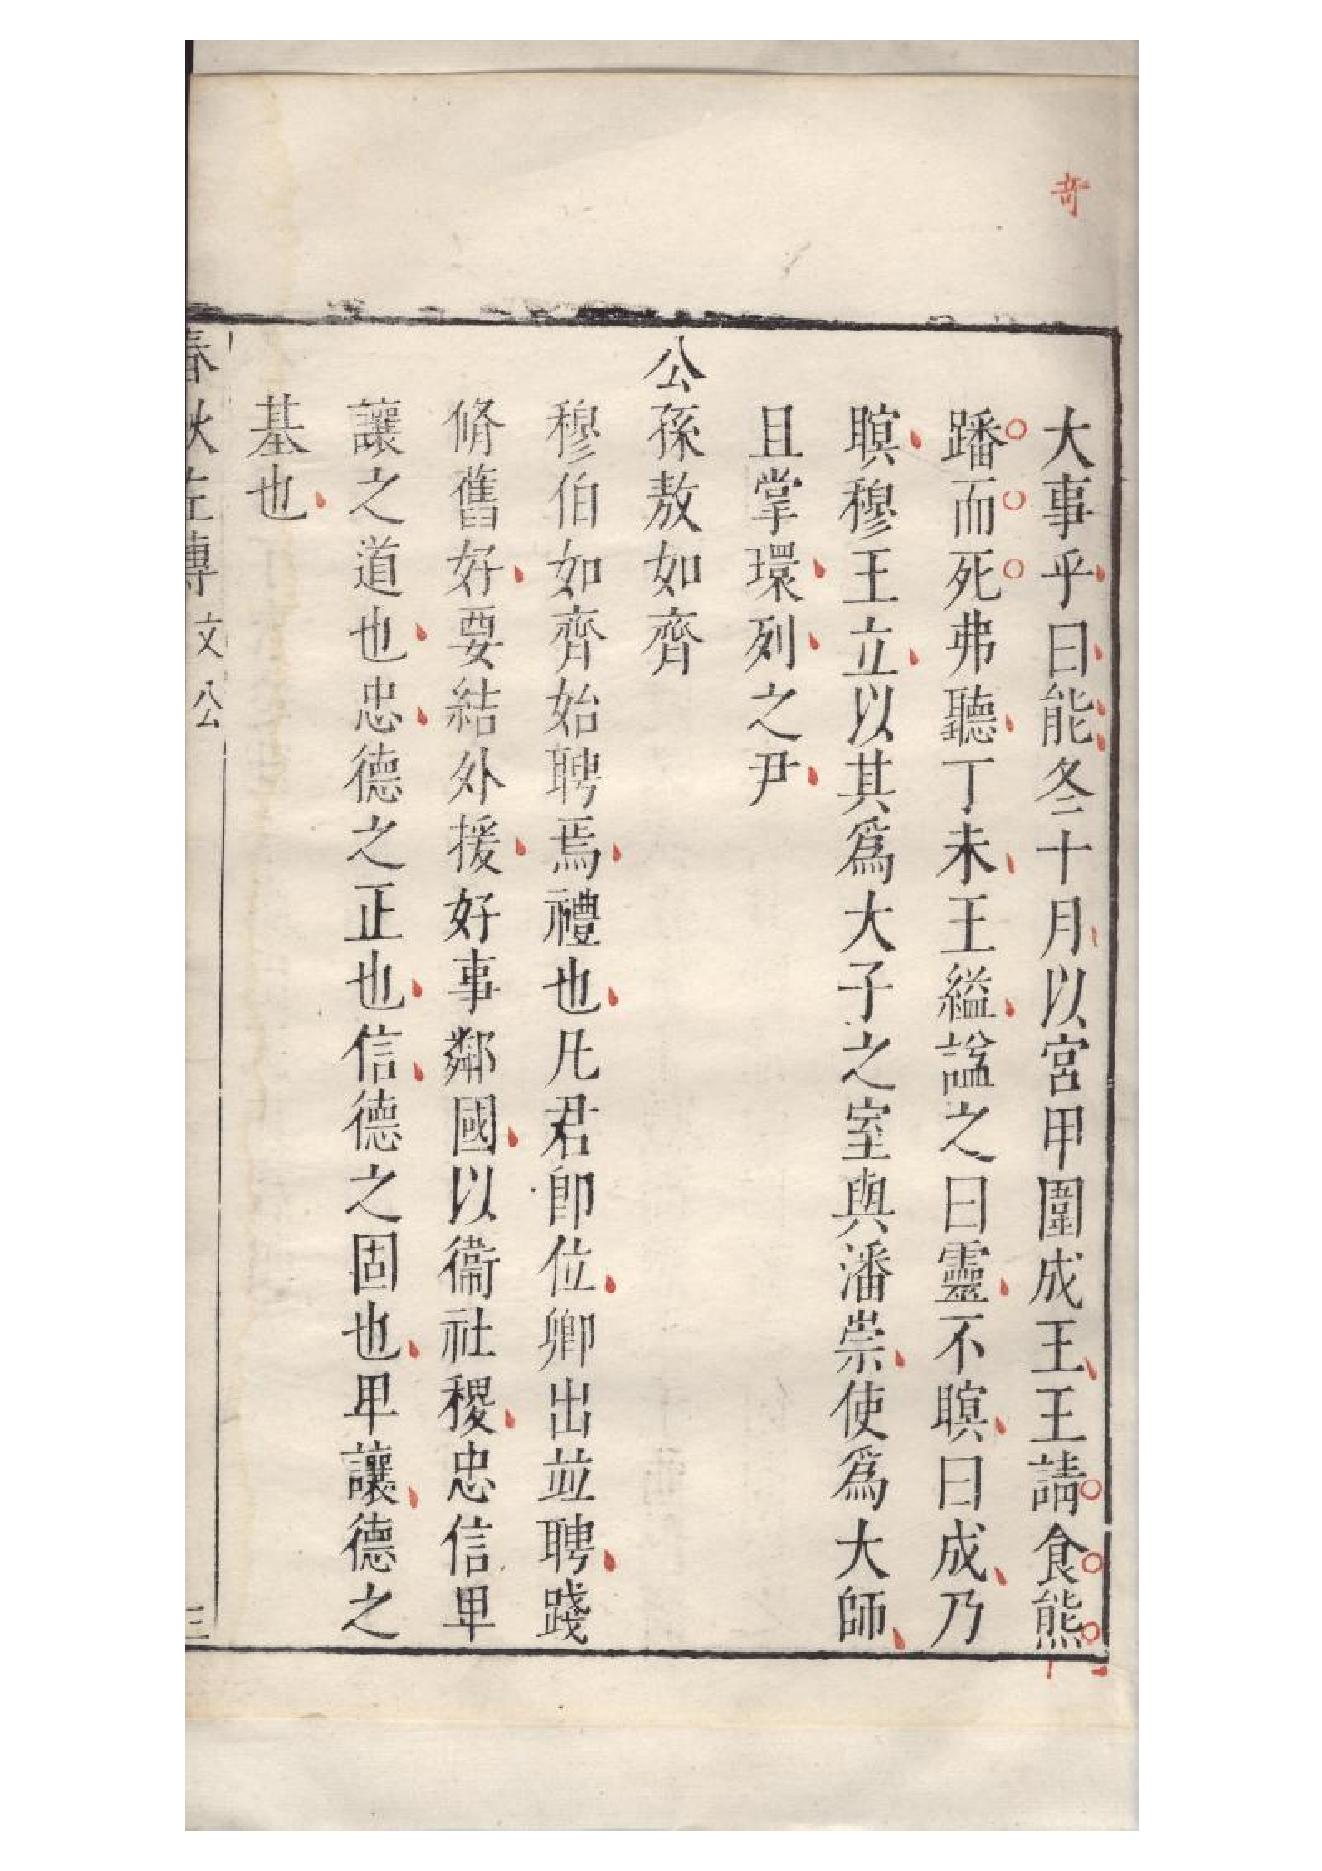 奇
大事乎曰能冬十月以宮甲圍成王王請食熊
蹯而死弗聽丁未王縊諡之曰靈不瞑曰成乃
瞑穆王立以其爲大子之室與潘崇使爲大師
且掌環列之尹
公孫敖如齊
穆伯如齊始聘焉禮也凡君卽位卿出並聘踐
脩舊好要結外援好事鄰國以衞社稷忠信卑
讓之道也忠德之正也信德之固也卑讓德之
基也
春秋左傳 文公 三